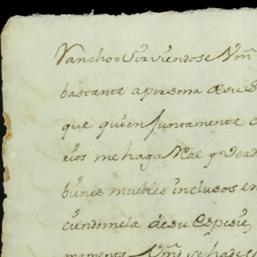 Rancho = Sirviendose Vmd
bastante a persona de su S
que quien Juntamente c
rios me haga Real y verd
bienes muebles inclusos en
cundomela de su Especie,
Vmd se hade